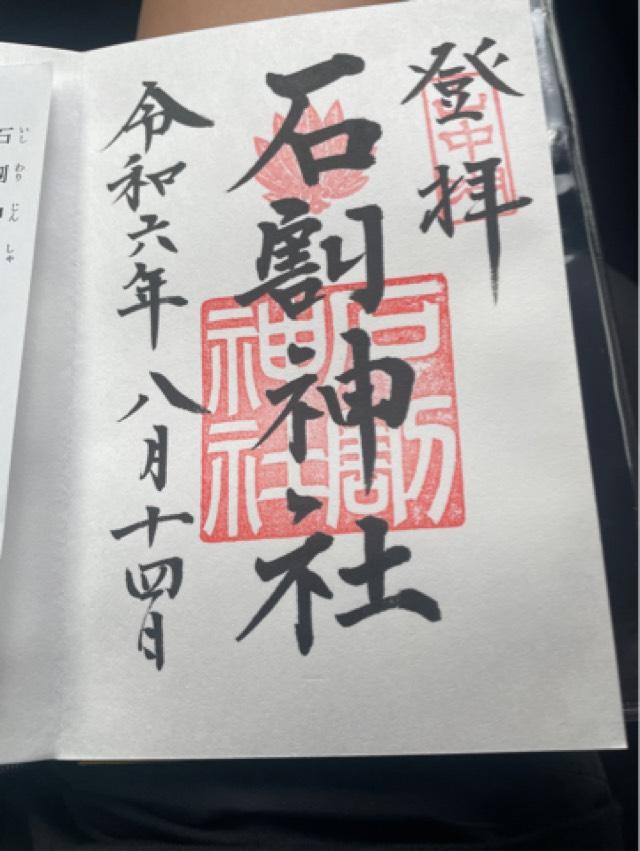 登拝
山中湖
石割神社
石割神社
令和六年八月十四日
いし わり じん しゃ